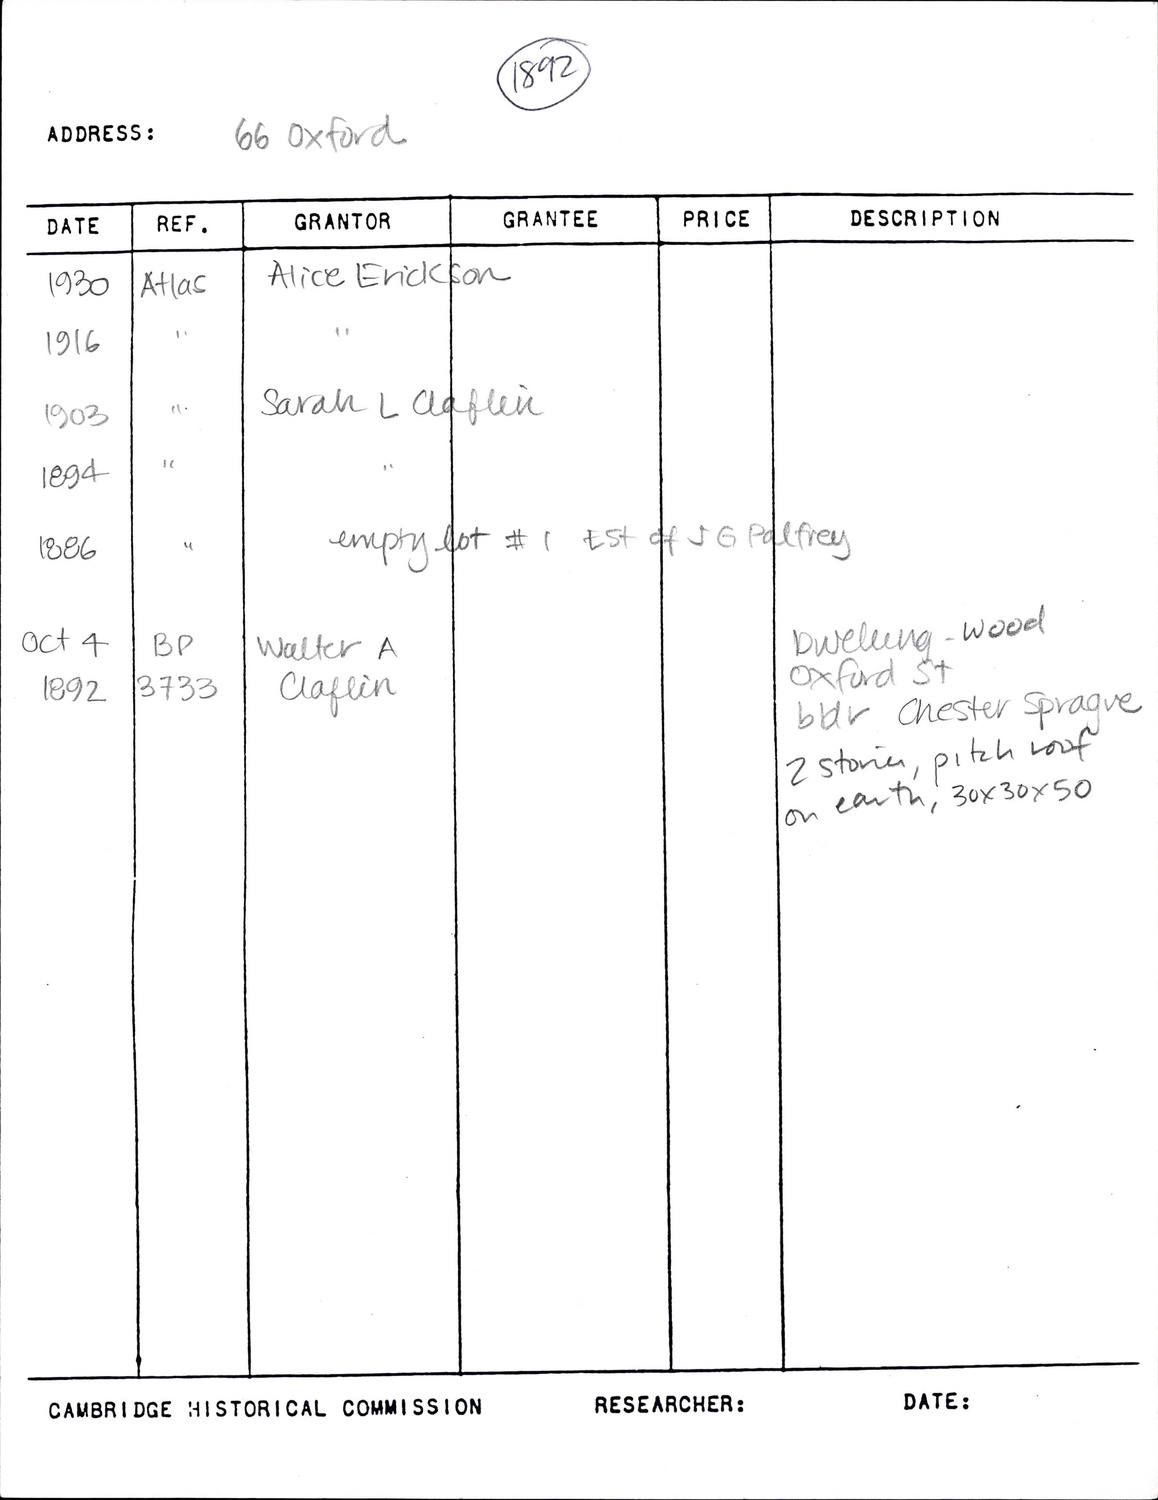 1892
ADDRESS: 66 Oxford
DATE REF. GRANTOR GRANTEE PRICE DESCRIPTION
1930 Atlas Alice Erickson
1916 " "
1903 " Sarah L Claflin
1894 " "
1886 " empty lot # 1 Est of J G Palfrey
Oct 4 BP Walter A Dwelling - wood
1892 3733 Claflin Oxford St
bdr Chester Sprague
2 stories, pitch roof
on earth, 30x30x50
CAMBRIDGE HISTORICAL COMMISSION RESEARCHER: DATE: